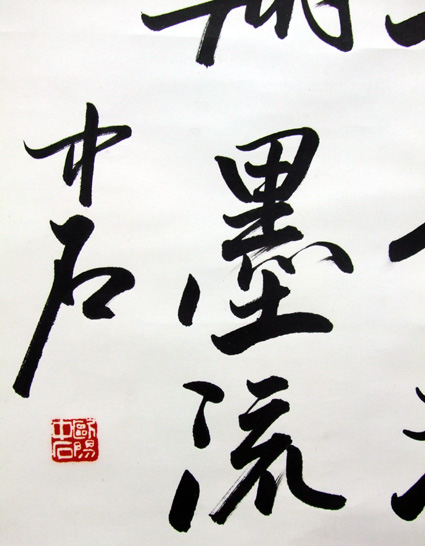 墨流
中石
歐陽中石